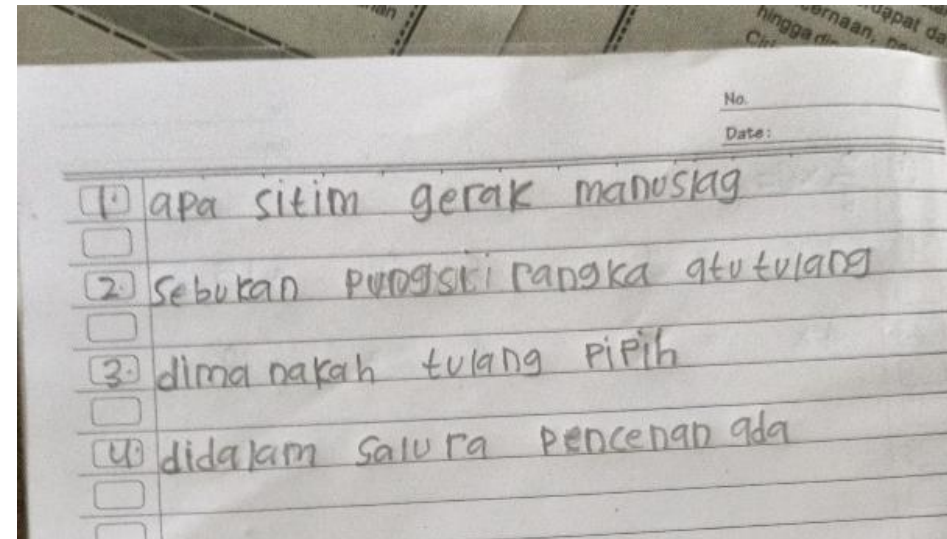 hingga di
ernaan,
dapat da
No.
Date:
1. apa sitim gerak manusiag
2. Sebukan pungski rangka atu tulang
3. dima nakah tulang pipih
4. didalam Salura pencenan ada